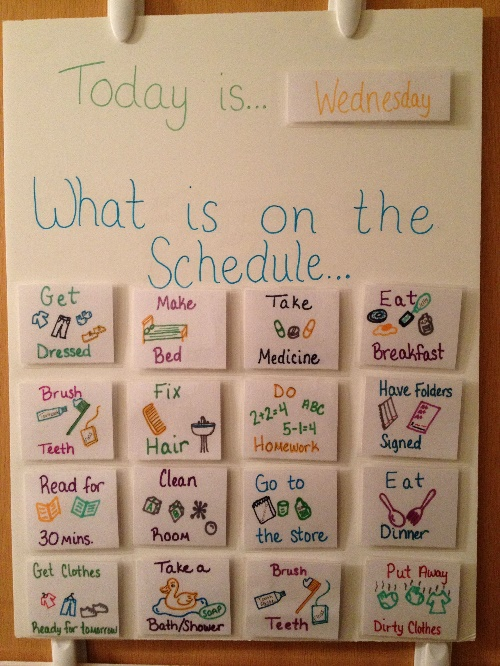 Today is... Wednesday
What is on the
Schedule...
Get
Dressed
Make
Bed
Take
Medicine
Eat
Breakfast
Brush
Teeth
Fix
Hair
Do
2+2=4 ABC
5-1=4
Homework
Have Folders
Signed
Read for
30 mins.
Clean
Room
Go to
the store
Eat
Dinner
Get Clothes
Ready for tomorrow
Take a
SOAP
Bath/Shower
Brush
Teeth
Put Away
Dirty Clothes